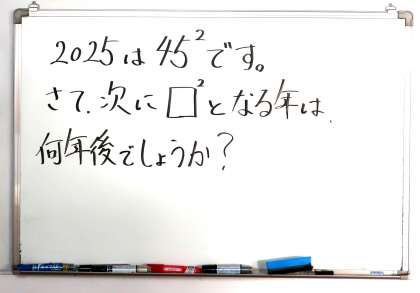 2025は45²です。
さて、次に□²となる年は、
何年後でしょうか？